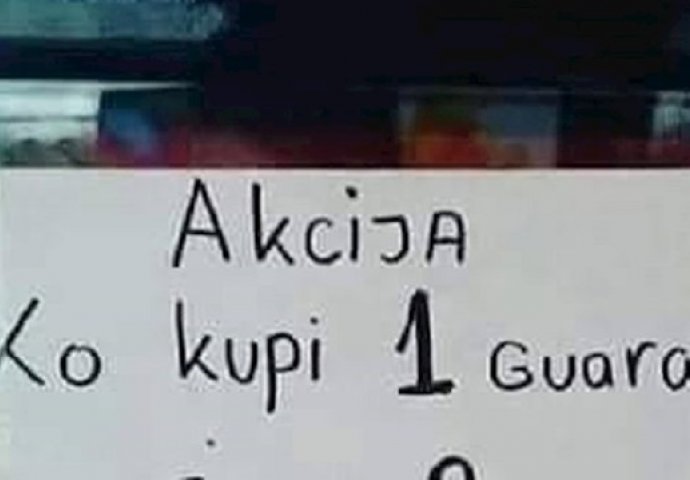 Akcija
Ko kupi 1 Guara